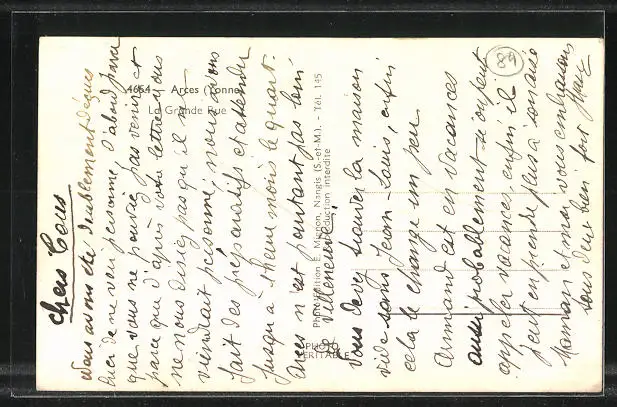 Chers Tous
Nous avons été doublement déçus
hier de ne voir personne, d'abord parce
que vous ne pouviez pas venir et
parce que d'après votre lettre vous
ne nous disiez pas qu'il ne
viendrait personne, nous avions
fait des préparatifs et attendu
jusqu'à 1 heure moins le quart.
Arces n'est pourtant pas loin
de Villeneuve !
Vous devez trouver la maison
vide sans Jean-Louis, enfin
cela le change un peu
Armand est en vacances
aussi probablement si on peut
appeler vacances, enfin il
peut en prendre plus à son aise
Maman et moi vous embrassons
tous deux bien fort
89
4664 - Arces (Yonne)
La Grande Rue
Photo-édition E. Mignon, Nangis (S.-et-M.) - Tél. 145
Reproduction interdite
PHOTO
VÉRITABLE